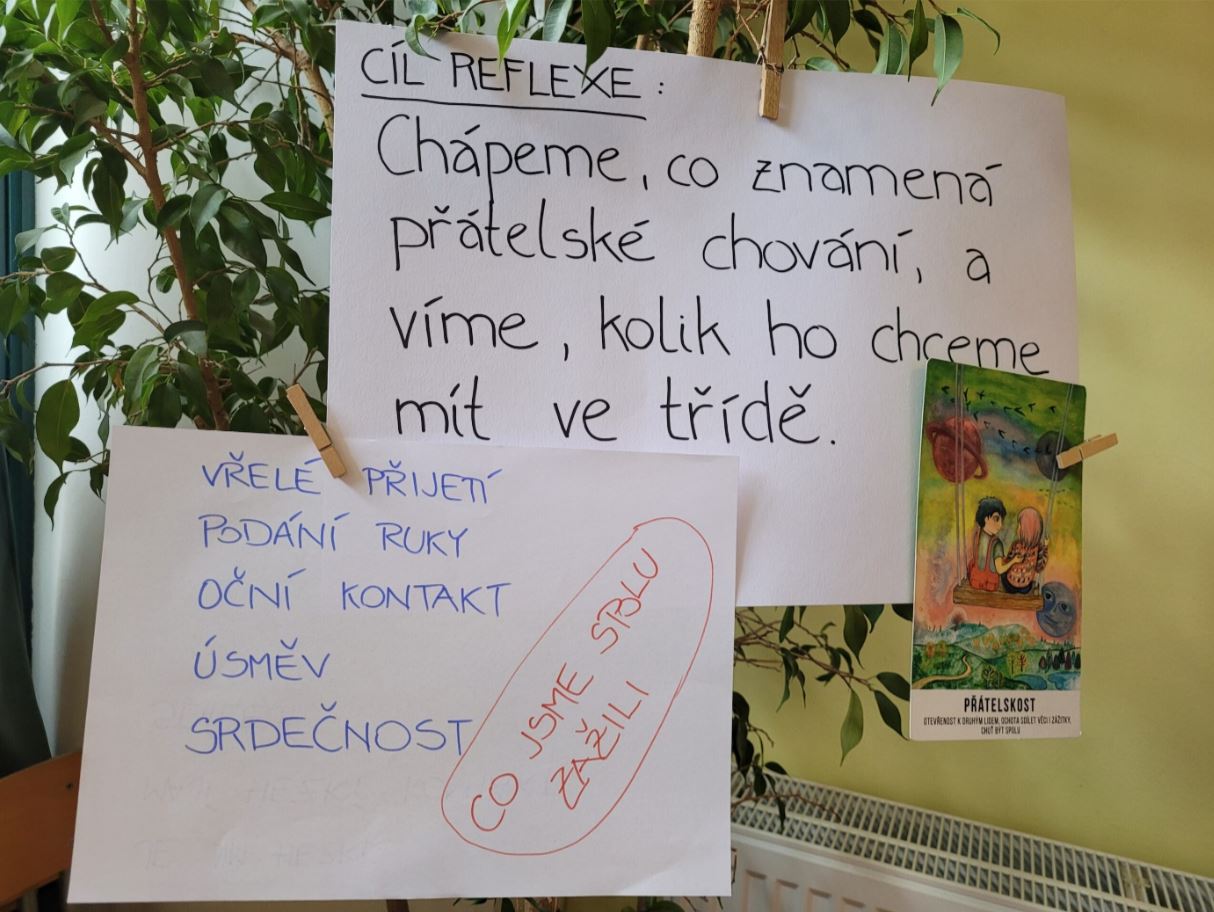 CÍL REFLEXE:
Chápeme, co znamená
přátelské chování, a
víme, kolik ho chceme
mít ve třídě.
VŘELÉ PŘIJETÍ
PODÁNÍ RUKY
OČNÍ KONTAKT
ÚSMĚV
SRDEČNOST
CO JSME SPOLU
ZAŽILI
PŘÁTELSKOST
OTEVŘENOST K DRUHÝM LIDEM, OCHOTA SDÍLET VĚCI I ZÁŽITKY,
CHUŤ BÝT SPOLU